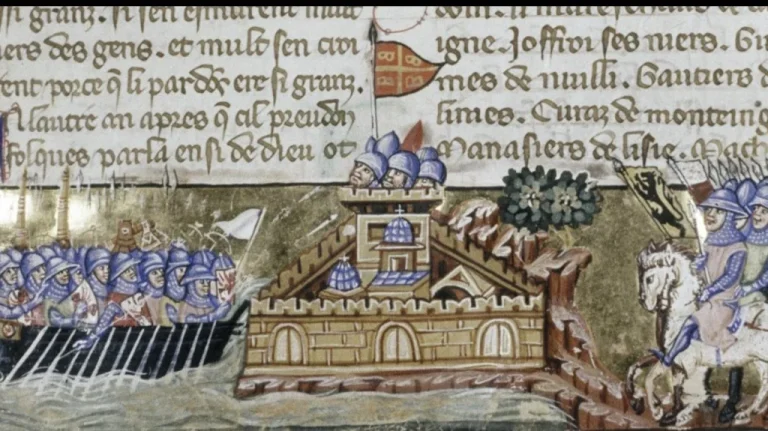 si granz. si sen esmurent mult
ers des gens. et mult sen croi
ent porce q̃ li pardõs ere si granz.
A lautre an apres q̃ cil preudõ
folques parla ensi de dieu ot
igne. Joffroi ses niers. Gu
mes de nuilli. Gautiers d
limes. Curaz de monteing
Manasiers de lisle. Mach